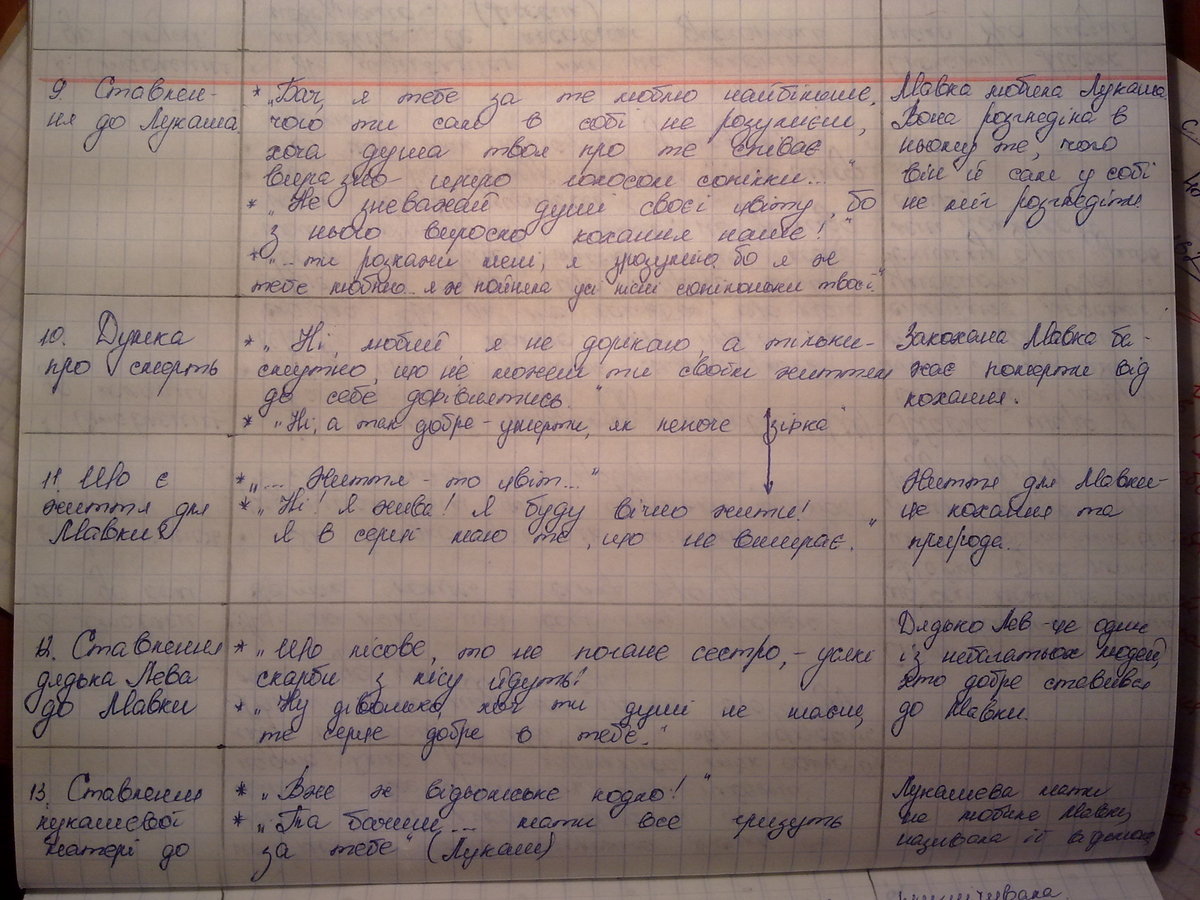 9. Ставлен-
ня до Лукаша.
* „Бач, я тебе за те люблю найбільше,
чого ти сам в собі не розумієш,
хоча душа твоя про те співає
виразно щиро голосом сопілки..."
* „Не зневажай душі своєї цвіту, бо
з нього виросло кохання наше!"
* „...ти розкажи мені, я зрозумію, бо я ж
тебе люблю... я ж пойняла усі пісні сопілоньки твоєї."
Мавка любила Лукаша.
Вона розгледіла в
ньому те, чого
він й сам у собі
не міг розгледіти.
10. Думка
про смерть
* „Ні, любий, я не дорікаю, а тільки-
смутно, що не можеш ти своїм життям
до себе дорівнятись."
* „Ні, а так добре - умерти, як летюча зірка"
Закохана Мавка ба-
жає померти від
кохання.
11. Що є
життя для
Мавки?
* „... Життя - то цвіт..."
* „Ні! Я жива! Я буду вічно жити!
Я в серці маю те, що не вмирає."
Життя для Мавки-
це кохання та
природа.
12. Ставлення
дядька Лева
до Мавки
* „Що лісове, то не погане сестро, - усякі
скарби з лісу йдуть!
* „Ну дівонько, хоч ти душі не маєш,
те серце добре в тебе."
Дядько Лев - це один
із небагатьох людей,
хто добре ставився
до Мавки.
13. Ставлення
лукашевої
матері до
* „Вже ж відьомське кодло!"
* „Та бачиш... мати все гризуть
за тебе" (Лукаш)
Лукашева мати
не любила Мавку,
називала її відьмою,